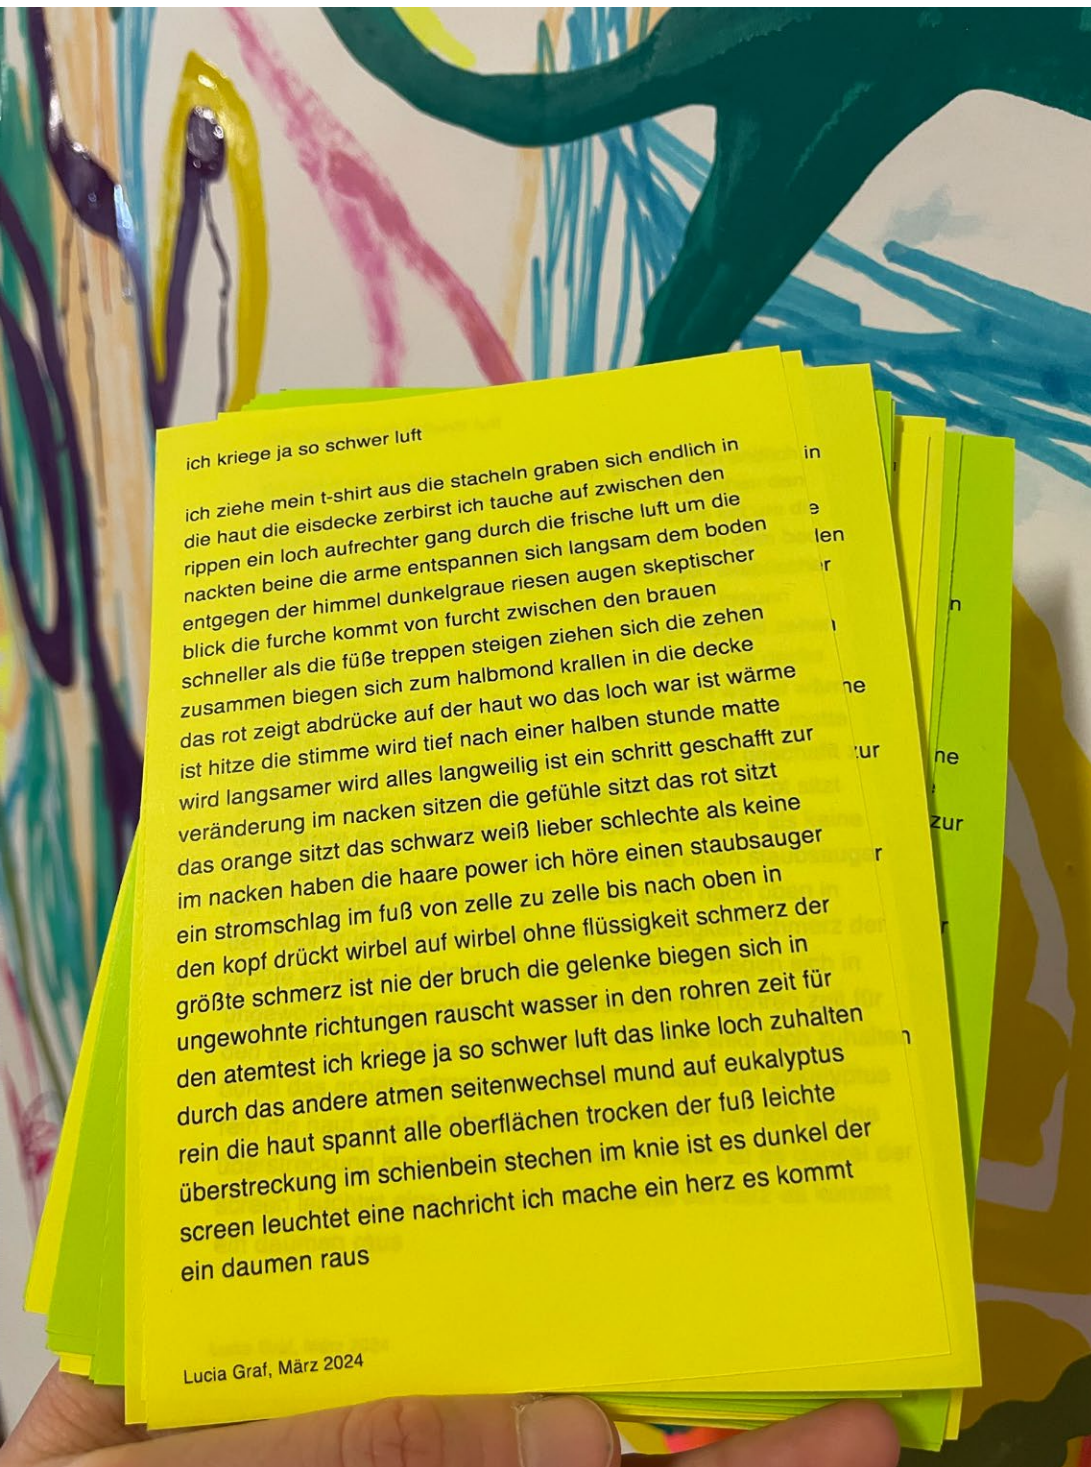 ich kriege ja so schwer luft
ich ziehe mein t-shirt aus die stacheln graben sich endlich in
die haut die eisdecke zerbirst ich tauche auf zwischen den
rippen ein loch aufrechter gang durch die frische luft um die
nackten beine die arme entspannen sich langsam dem boden
entgegen der himmel dunkelgraue riesen augen skeptischer
blick die furche kommt von furcht zwischen den brauen
schneller als die füße treppen steigen ziehen sich die zehen
zusammen biegen sich zum halbmond krallen in die decke
das rot zeigt abdrücke auf der haut wo das loch war ist wärme
ist hitze die stimme wird tief nach einer halben stunde matte
wird langsamer wird alles langweilig ist ein schritt geschafft zur
veränderung im nacken sitzen die gefühle sitzt das rot sitzt
das orange sitzt das schwarz weiß lieber schlechte als keine
im nacken haben die haare power ich höre einen staubsauger
ein stromschlag im fuß von zelle zu zelle bis nach oben in
den kopf drückt wirbel auf wirbel ohne flüssigkeit schmerz der
größte schmerz ist nie der bruch die gelenke biegen sich in
ungewohnte richtungen rauscht wasser in den rohren zeit für
den atemtest ich kriege ja so schwer luft das linke loch zuhalten
durch das andere atmen seitenwechsel mund auf eukalyptus
rein die haut spannt alle oberflächen trocken der fuß leichte
überstreckung im schienbein stechen im knie ist es dunkel der
screen leuchtet eine nachricht ich mache ein herz es kommt
ein daumen raus
Lucia Graf, März 2024